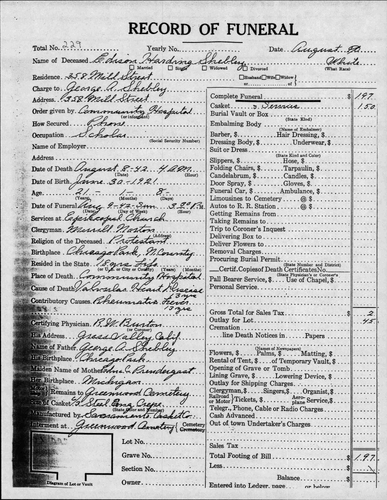 RECORD OF FUNERAL
Total No. 229 Yearly No. Date August 8th
Name of Deceased Edison Harding Shebley White
Married Single Widowed Divorced Husband Wife Widow (What Race)
Residence 358 Mill Street of
Charge to George A. Shebley
Address 358 Mill Street
Order given by Community Hospital
How Secured Phone
Occupation Scholar
(Social Security Number)
Name of Employer
Address
Date of Death August 8-42. 4 a.m.
Date of Birth June 30-1921
Age 21 1 8
(Years) (Months) (Days)
Date of Funeral Aug 9-42
Services at Episcopal Church
Clergyman Merrill Norton
Religion of the Deceased Protestant
Birthplace Chicago Park, N. County
Resided in the State
Place of Death Community Hospital
Cause of Death Valvular Heart Disease
Contributory Causes Rheumatic Fever
13 yrs
Certifying Physician
His Address Grass Valley Calif
Name of Father George A. Shebley
His Birthplace Chicago Park
Maiden Name of Mother Prendergast
Her Birthplace Michigan
Remains to Greenwood Cemetery
Size of Casket
Manufactured by Sacramento Casket Co
Interment at Greenwood Cemetery
Lot No.
Grave No.
Section No.
Diagram of Lot or Vault
Complete Funeral $ 197
Casket & Service 150
Burial Vault or Box
(State Kind)
Embalming Body
(Name of Embalmer)
Barber, $ Hair Dressing, $
Dressing Body, $ Underwear, $
Suit or Dress
(State Kind and Color)
Slippers, $ Hose, $
Folding Chairs, $ Tarpaulin, $
Candelabrum, $ Candles, $
Door Spray, $ Gloves, $
Funeral Car, $ Ambulance, $
Limousines to Cemetery @ $
Autos to R. R. Station @ $
Getting Remains from
Taking Remains to
Trip to Coroner's Inquest
Delivering Box to
Deliver Flowers to
Removal Charges
Procuring Burial Permit
(State Number and District)
Certif. Copies of Death Certificates No.
(State Physician's or Coroner's)
Pall Bearer Service, $ Use of Chapel, $
Personal Service
Gross Total for Sales Tax $ 2
Outlay for Lot 45
Cremation
line Death Notices in Papers
(Names of Newspapers)
Flowers, $ Palms, $ Matting, $
Rental of Tent, $ of Temporary Vault, $
Opening of Grave or Tomb
Lining Grave, $ Lowering Device, $
Outlay for Shipping Charges
Clergyman, $ Singers, $ Organist, $
Railroad or Motor Tickets, $ Aeroplane Service, $
Telegr., Phone, Cable or Radio Charges
Cash Advanced
Out of town Undertaker's Charges
Sales Tax
Total Footing of Bill $ 197
Less $
Balance $
Entered into Ledger, page or below